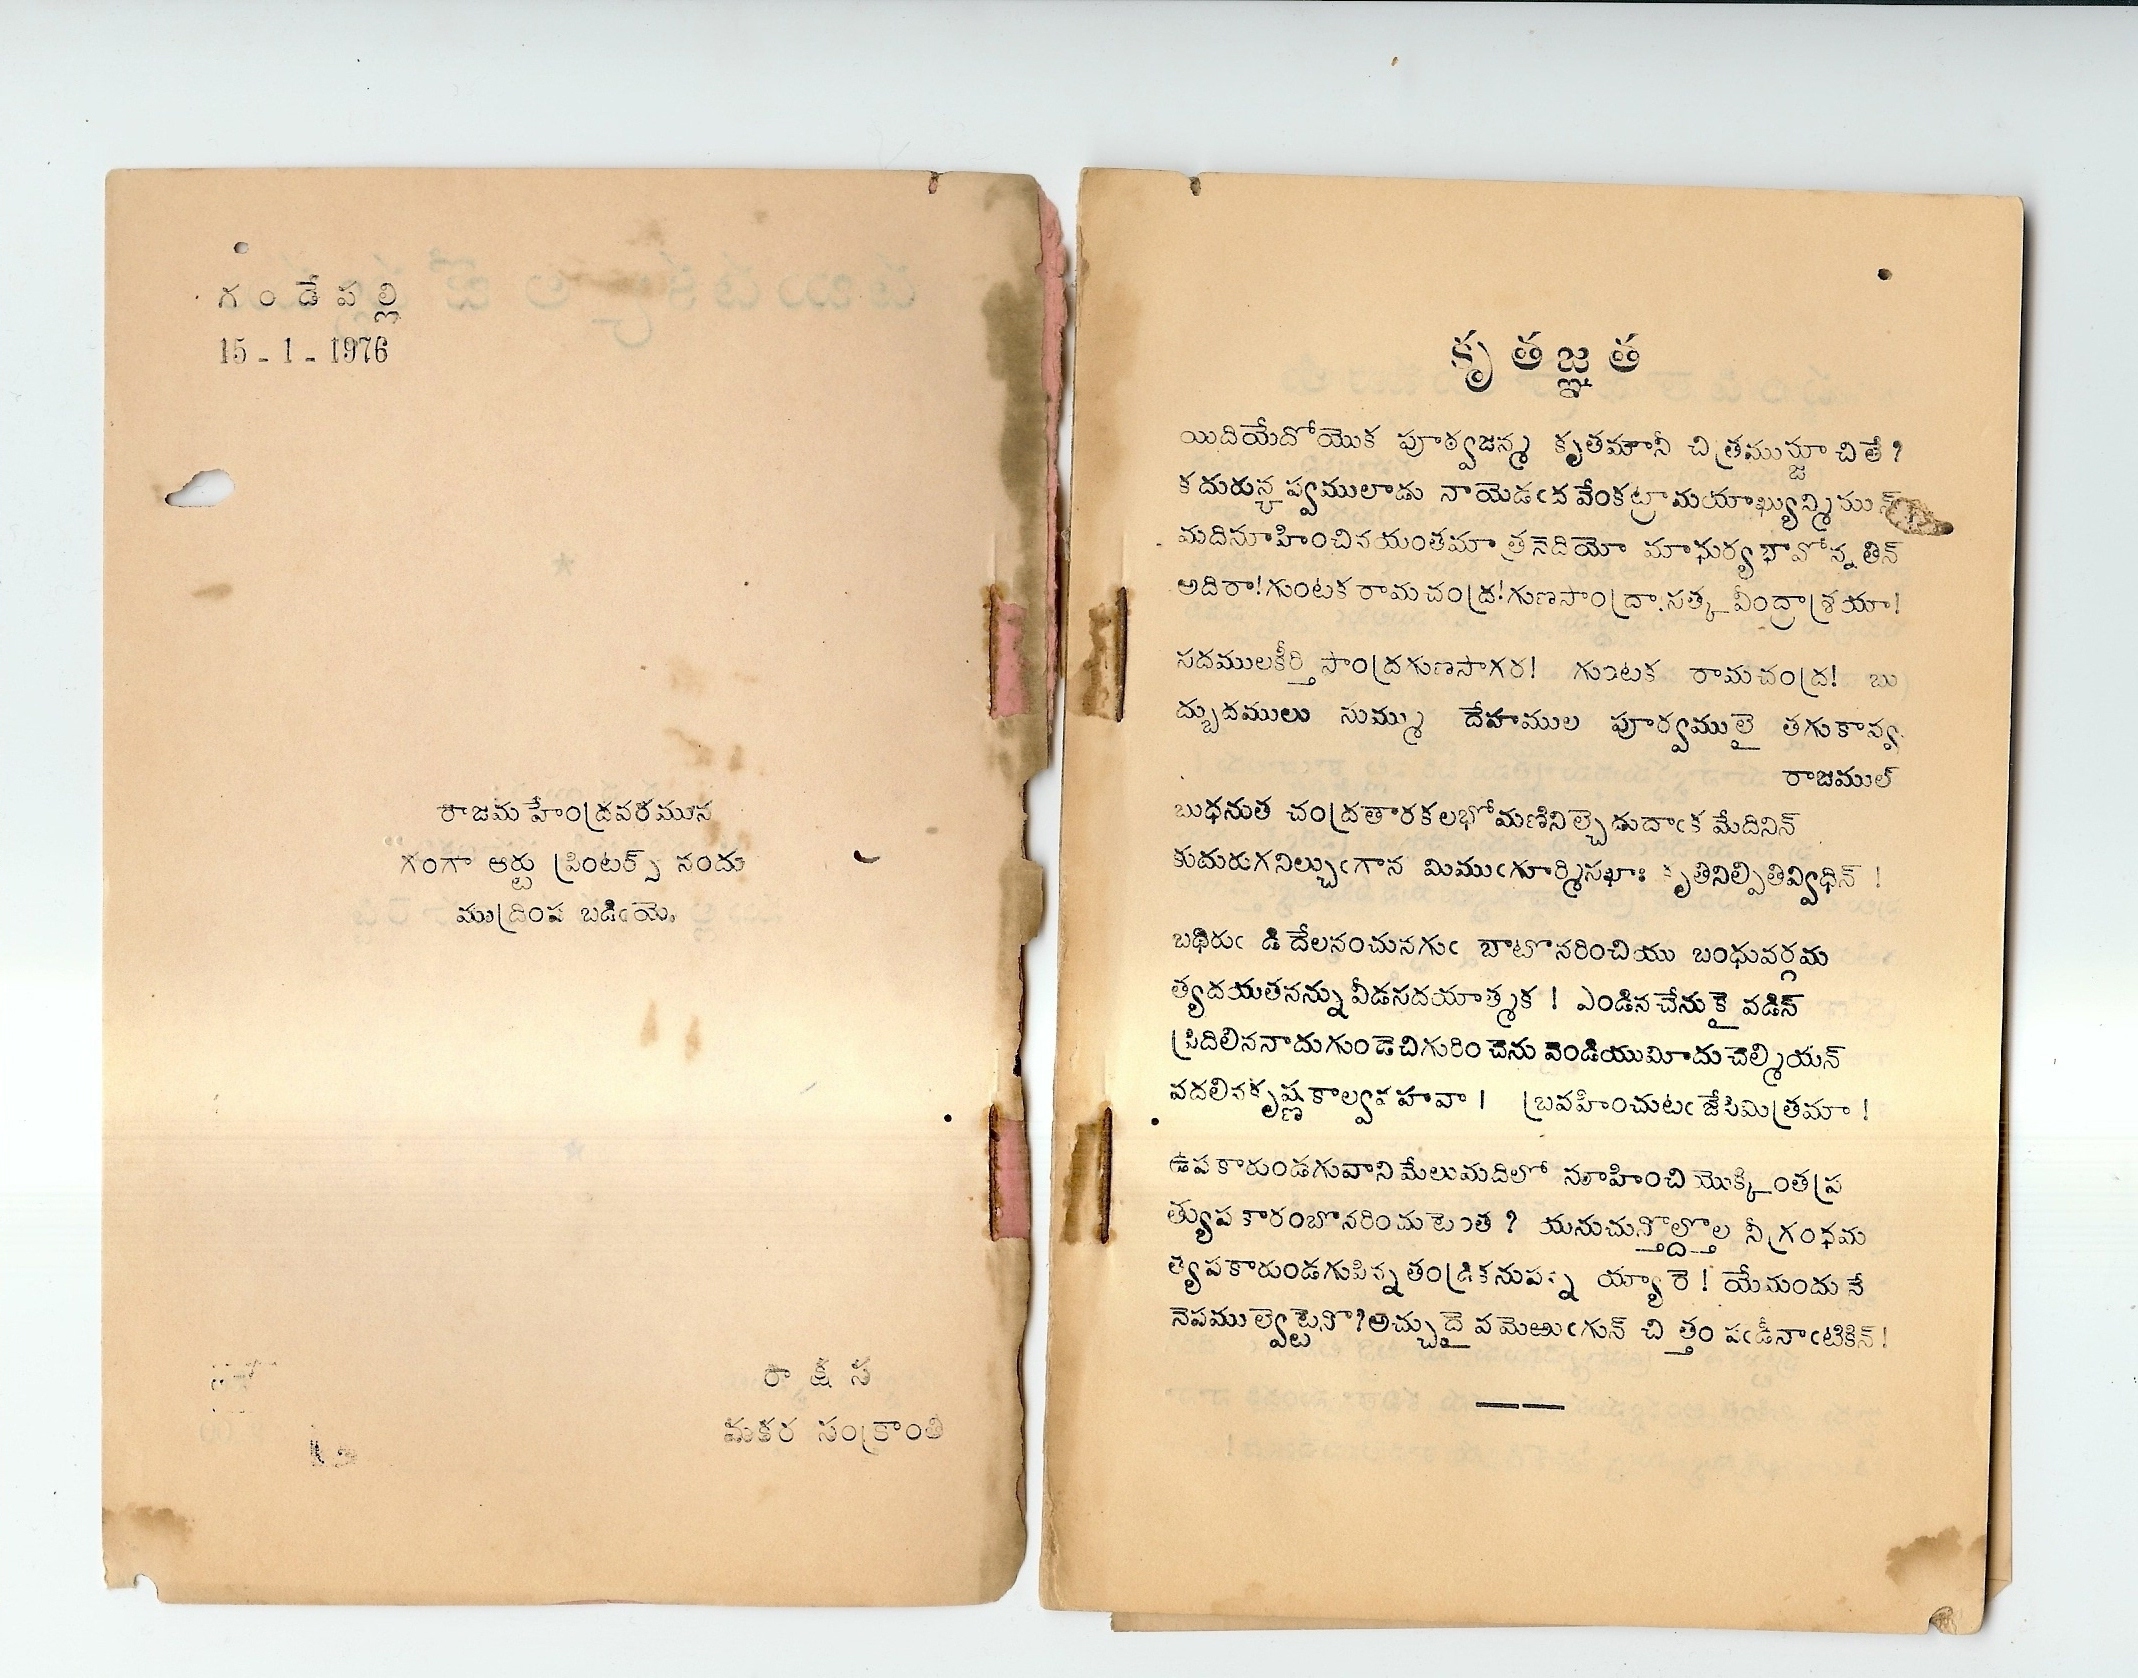 గండేపల్లి
15-1-1976
రాజమహేంద్రవరమున
గంగా ఆర్టు ప్రింటర్స్ నందు
ముద్రింప బడియె.
రాక్షస
మకర సంక్రాంతి
కృతజ్ఞత
యిదియేదోయొక పూర్వజన్మ కృతమానీ చిత్రమున్జూచితే?
కదురున్బవ్వములాడు నాయెడఁద వేంకట్రామయాఖ్యున్మిమున్
మదినూహించినయంతమాత్రనెదియో మాధుర్యభావోన్నతిన్
అదిరా!గుంటక రామచంద్ర!గుణసాంద్రా.సత్కవీంద్రాశ్రయా!
సదములకీర్తి సాంద్రగుణసాగర! గుంటక రామచంద్ర! బు
ద్బుదములు సుమ్ము దేహముల పూర్వములై తగుకావ్య
రాజముల్
బుధనుత చంద్రతారకలభోమణినిల్చెడుదాఁక మేదినిన్
కుదురుగనిల్చుఁగాన మిముఁగూర్మిసఖాః కృతినిల్పితివ్విధిన్ !
బధిరుఁ డి దేలనంచునగుఁ బాటొనరించియు బంధువర్గమ
త్యదయతనన్ను వీడసదయాత్మక ! ఎండినచేనుకై వడిన్
ప్రిదిలిననాదుగుండెచిగురించెను వెండియుమీదుచెల్మియన్
వదలినకృష్ణకాల్వ హవా। బ్రవహించుటఁ జేసిమిత్రమా !
ఉపకారుండగువానిమేలుమదిలో నూహించి యొక్కింతప్ర
త్యుపకారంబొనరించుటెంత? యనుచున్తొల్దొల్త నీగ్రంథమ
త్యుపకారుండగుపిన్నతండ్రికనుప య్యారె ! యేమందునే
నెపముల్వెట్టెనొ?అచ్చుదై వమెఱుఁగున్ చి త్తం పఁడీనాఁటికిన్!